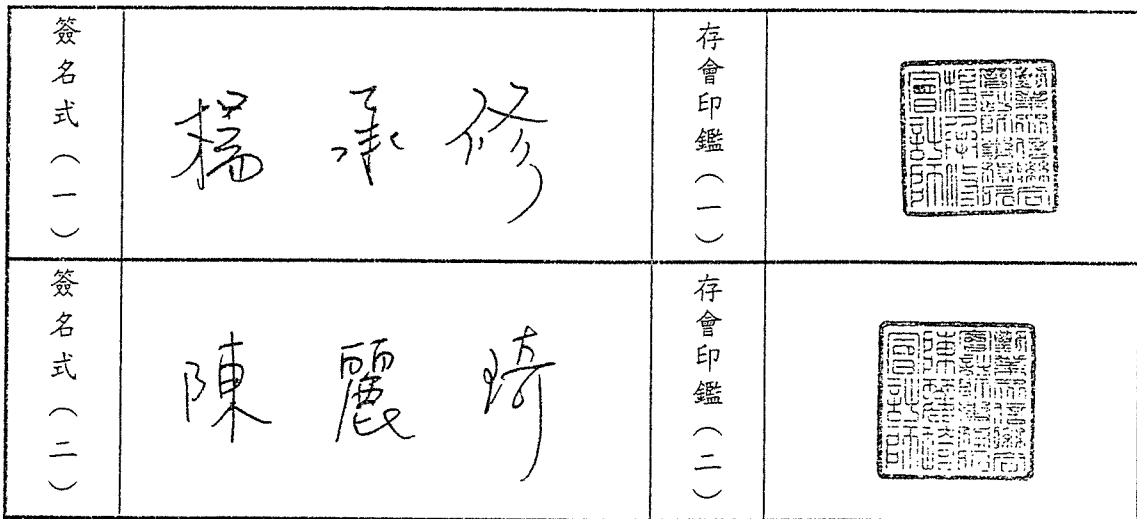 簽名式（一）
楊承修
存會印鑑（一）
簽名式（二）
陳麗琦
存會印鑑（二）